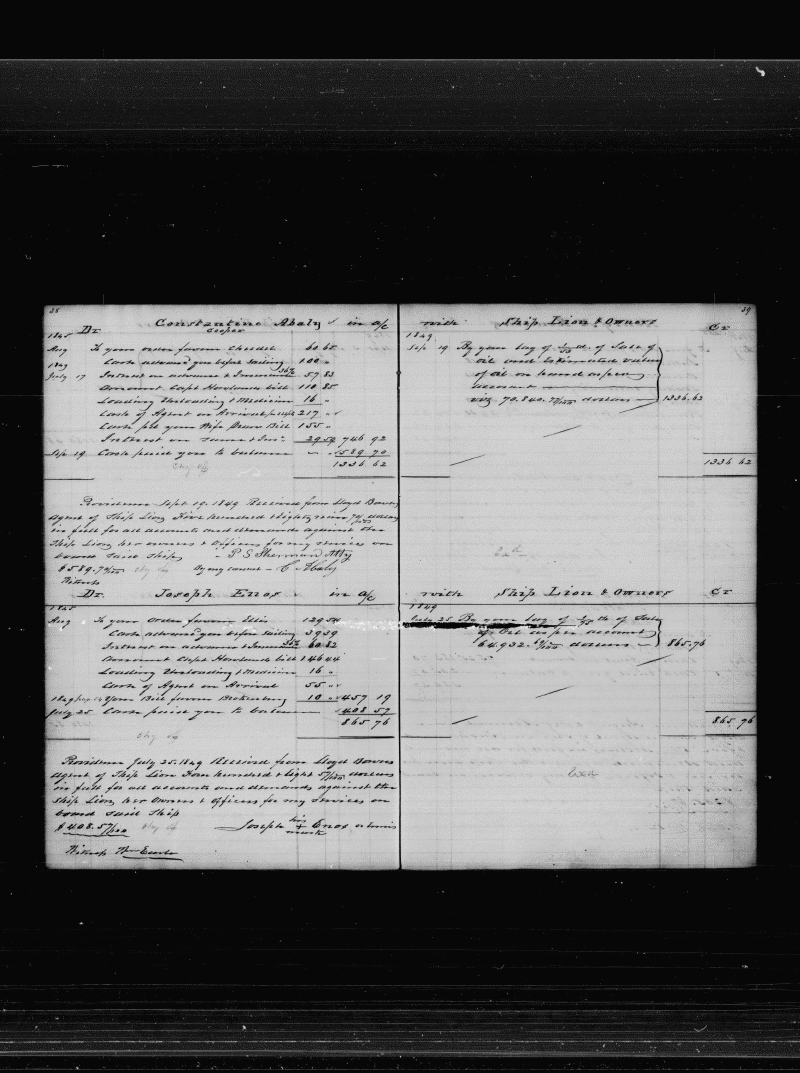 38
Constantine Abaly in a/c
Cooper
1845 Dr
Aug To your order favour 60 65
1849 Cash advanced you before Sailing 100 "
July 17 Interest on advance & Insurance 36% 57 83
Amount Capt Howlands bill 110 85
Loading Unloading & Medicine 16 "
Cash of Agent on Arrival 217 "
Cash pd your Wife Bill 155 "
Interest on same & Ins. 29 59 746 92
Sep 19 Cash paid you to balance 589 70
1336 62
Providence Sept 19. 1849 Received from Lloyd Bowers
Agent of Ship Lion Five hundred & Eighty nine 70/100 dollars
in full for all accounts and demands against the
Ship Lion, her owners & Officers for my services on
board said Ship P S Sherman Atty
$589.70/100 By my consent - C Abaly
Witness
Dr. Joseph Enos in a/c
1845
Aug To your order favour Ellis 129 54
Cash advanced you before Sailing 39 39
Interest on advance & Insurance 36% 60 82
Amount Capt Howlands bill 146 44
Loading Unloading & Medicine 16 "
Cash of Agent on Arrival 55 "
1849 Your Bill favour 10 " 457 19
July 25 Cash paid you to balance 408 57
865 76
Providence July 25. 1849 Received from Lloyd Bowers
Agent of Ship Lion Four hundred & Eight 57/100 dollars
in full for all accounts and demands against the
Ship Lion, her Owners & Officers for my services on
board said Ship
$408.57/100 Joseph his + mark Enos
Witness Wm Earle
39
with Ship Lion & Owners Cr
1849
Sep 19 By your lay of of Sales of
oil and Estimated value
of oil on hand as per
account
viz 70.840. 77/100 dollars 1336.62
1336 62
with Ship Lion & Owners Cr
1849
July 25 By your lay of of Sales
of Oil as per account
64.932. dollars 865.76
865. 76